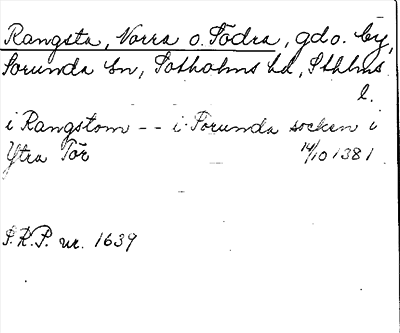 Rangsta, Norra o. Södra, gdo. by,
Sorunda sn, Sotholms hd, Sthlms
l.
i Rangstom -- i Sorunda socken i
Ytra Tör 14/10 1381
S.R.P. nr. 1639